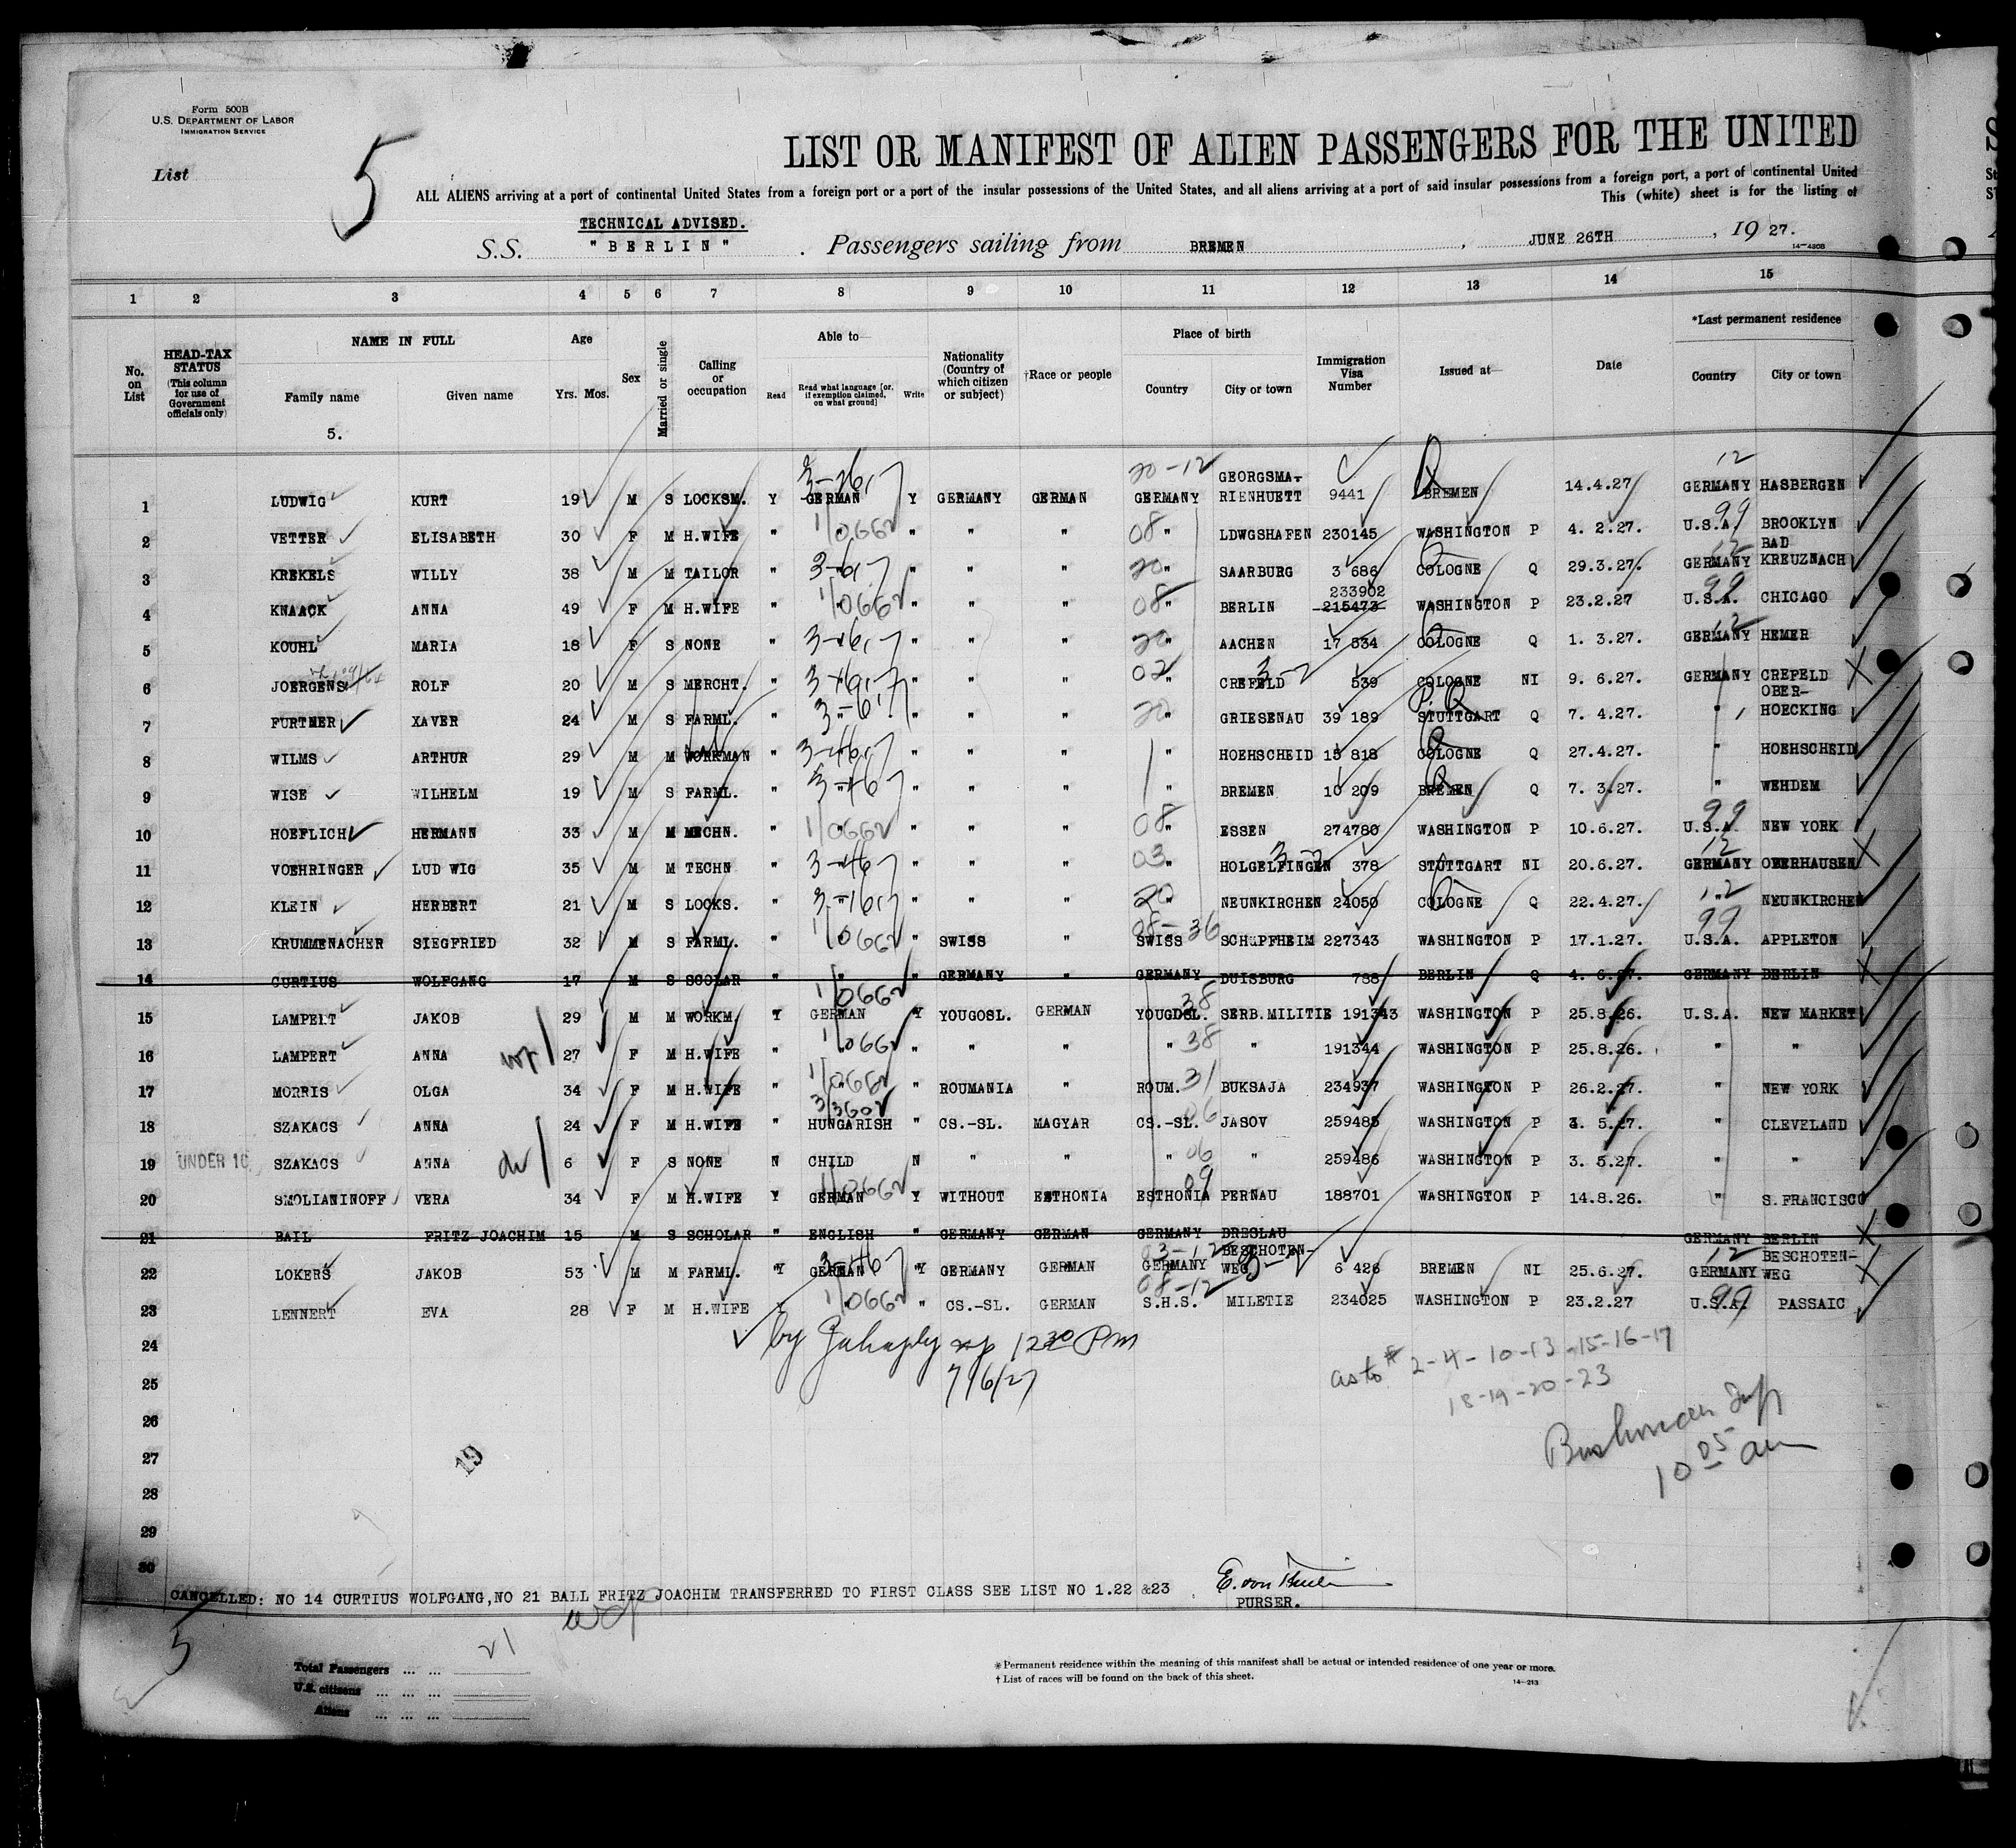 Form 500B
U.S. DEPARTMENT OF LABOR
IMMIGRATION SERVICE
List 5
LIST OR MANIFEST OF ALIEN PASSENGERS FOR THE UNITED
ALL ALIENS arriving at a port of continental United States from a foreign port or a port of the insular possessions of the United States, and all aliens arriving at a port of said insular possessions from a foreign port, a port of continental United
This (white) sheet is for the listing of
TECHNICAL ADVISED.
S.S. "BERLIN". Passengers sailing from BREMEN, JUNE 26TH, 19 27.
14-430B
1 2 3 4 5 6 7 8 9 10 11 12 13 14 15
No. on List
HEAD-TAX STATUS (This column for use of Government officials only)
NAME IN FULL Family name Given name
Age Yrs. Mos.
Sex
Married or single
Calling or occupation
Able to— Read Read what language [or, if exemption claimed, on what ground] Write
Nationality (Country of which citizen or subject)
†Race or people
Place of birth Country City or town
Immigration Visa Number
Issued at—
Date
*Last permanent residence Country City or town
5.
1 LUDWIG KURT 19 M S LOCKSM. Y GERMAN Y GERMANY GERMAN GERMANY 20-12 GEORGSMA-RIENHUETT 9441 BREMEN 14.4.27. GERMANY 12 HASBERGEN
2 VETTER ELISABETH 30 F M H.WIFE " " " " " 08 " LDWGSHAFEN 230145 WASHINGTON P 4. 2.27. U.S.A. 99 BROOKLYN
3 KREKELS WILLY 38 M M TAILOR " " " " " 20 " SAARBURG 3 686 COLOGNE Q 29.3.27. GERMANY 12 BAD KREUZNACH
4 KNAACK ANNA 49 F M H.WIFE " " " " " 08 " BERLIN 233902 215473 WASHINGTON P 23.2.27 U.S.A. 99 CHICAGO
5 KOUHL MARIA 18 F S NONE " " " " " 20 " AACHEN 17 534 COLOGNE Q 1. 3.27. GERMANY 12 HEMER
6 JOERGENS ROLF 20 M S MERCHT. " " " " " 02 " CREFELD 3-2 539 COLOGNE NI 9. 6.27. GERMANY CREFELD
7 FURTNER XAVER 24 M S FARML. " " " " " 20 " GRIESENAU 39 189 STUTTGART Q 7. 4.27. " OBER-HOECKING
8 WILMS ARTHUR 29 M M WORKMAN " " " " " " HOEHSCHEID 15 818 COLOGNE Q 27.4.27. " HOEHSCHEID
9 WISE WILHELM 19 M S FARML. " " " " " " BREMEN 10 209 BREMEN Q 7. 3.27. " WEHDEM
10 HOEFLICH HERMANN 33 M M MECHN. " " " " " 08 " ESSEN 274780 WASHINGTON P 10.6.27. U.S.A. 99 NEW YORK
11 VOEHRINGER LUD WIG 35 M M TECHN " " " " " 03 " HOLGELFINGEN 378 STUTTGART NI 20.6.27. GERMANY 12 OBERHAUSEN
12 KLEIN HERBERT 21 M S LOCKS. " " " " " 20 " NEUNKIRCHEN 24050 COLOGNE Q 22.4.27. " 12 NEUNKIRCHEN
13 KRUMMENACHER SIEGFRIED 32 M S FARML. " " " SWISS " SWISS 08-36 SCHUPFHEIM 227343 WASHINGTON P 17.1.27. U.S.A. 99 APPLETON
14 CURTIUS WOLFGANG 17 M S SCOLAR " " " GERMANY " GERMANY DUISBURG 788 BERLIN Q 4. 6.27. GERMANY BERLIN
15 LAMPERT JAKOB 29 M M WORKM. Y GERMAN Y YOUGOSL. GERMAN YOUGOSL. 38 SERB.MILITIE 191343 WASHINGTON P 25.8.26. U.S.A. NEW MARKET
16 LAMPERT ANNA 27 F M H.WIFE " " " " " " 38 " 191344 WASHINGTON P 25.8.26. " "
17 MORRIS OLGA 34 F M H.WIFE " " " ROUMANIA " ROUM. 31 BUKSAJA 234937 WASHINGTON P 26.2.27. " NEW YORK
18 SZAKACS ANNA 24 F M H.WIFE " HUNGARISH " CS.-SL. MAGYAR CS.-SL. 06 JASOV 259485 WASHINGTON P 3. 5.27. " CLEVELAND
19 UNDER 16 SZAKACS ANNA 6 F S NONE N CHILD N " " " 06 " 259486 WASHINGTON P 3. 5.27. " "
20 SMOLIANINOFF VERA 34 F M H.WIFE Y GERMAN Y WITHOUT ESTHONIA ESTHONIA 09 PERNAU 188701 WASHINGTON P 14.8.26. " S.FRANCISCO
21 BAIL FRITZ JOACHIM 15 M S SCHOLAR " ENGLISH " GERMANY GERMAN GERMANY BRESLAU GERMANY BERLIN
22 LOKERS JAKOB 53 M M FARML. "Y GERMAN "Y GERMANY GERMAN GERMANY 03-12 BESCHOTEN-WEG 6 426 BREMEN NI 25.6.27. GERMANY 12 BESCHOTEN-WEG
23 LENNERT EVA 28 F M H.WIFE Y " " CS.-SL. GERMAN S.H.S. 08-12 MILETIE 234025 WASHINGTON P 23.2.27 U.S.A. 99 PASSAIC
24
by 12 30 PM
25
7/6/27
as to # 2-4-10-13-15-16-17
18-19-20-23
26
27
28
29
30
Bushman Insp
10 05 am
19
CANCELLED: NO 14 CURTIUS WOLFGANG,NO 21 BALL FRITZ JOACHIM TRANSFERRED TO FIRST CLASS SEE LIST NO 1.22 &23
E. von
PURSER.
5
Total Passengers ... ... 21
U.S. citizens ... ... ...
Aliens ... ... ...
*Permanent residence within the meaning of this manifest shall be actual or intended residence of one year or more.
†List of races will be found on the back of this sheet.
14-213